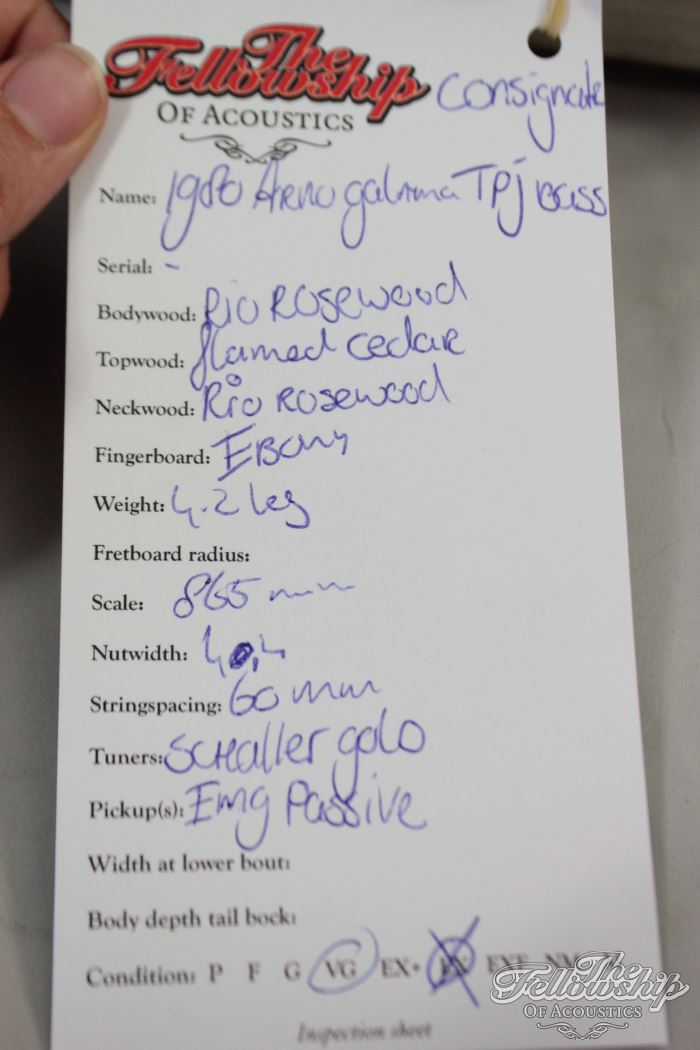 The
Fellowship
OF ACOUSTICS
Consignatie
Name: 1980 Areno galarma TPJ Bass
Serial: -
Bodywood: Rio Rosewood
Topwood: flamed cedar
Neckwood: Rio Rosewood
Fingerboard: Ebony
Weight: 4.2 kg
Fretboard radius:
Scale: 865 mm
Nutwidth: 40,4
Stringspacing: 60 mm
Tuners: Schaller gold
Pickup(s): Emg Passive
Width at lower bout:
Body depth tail bock:
Condition: P F G VG EX+ EX EXE NM
Inspection sheet
The
Fellowship
OF ACOUSTICS